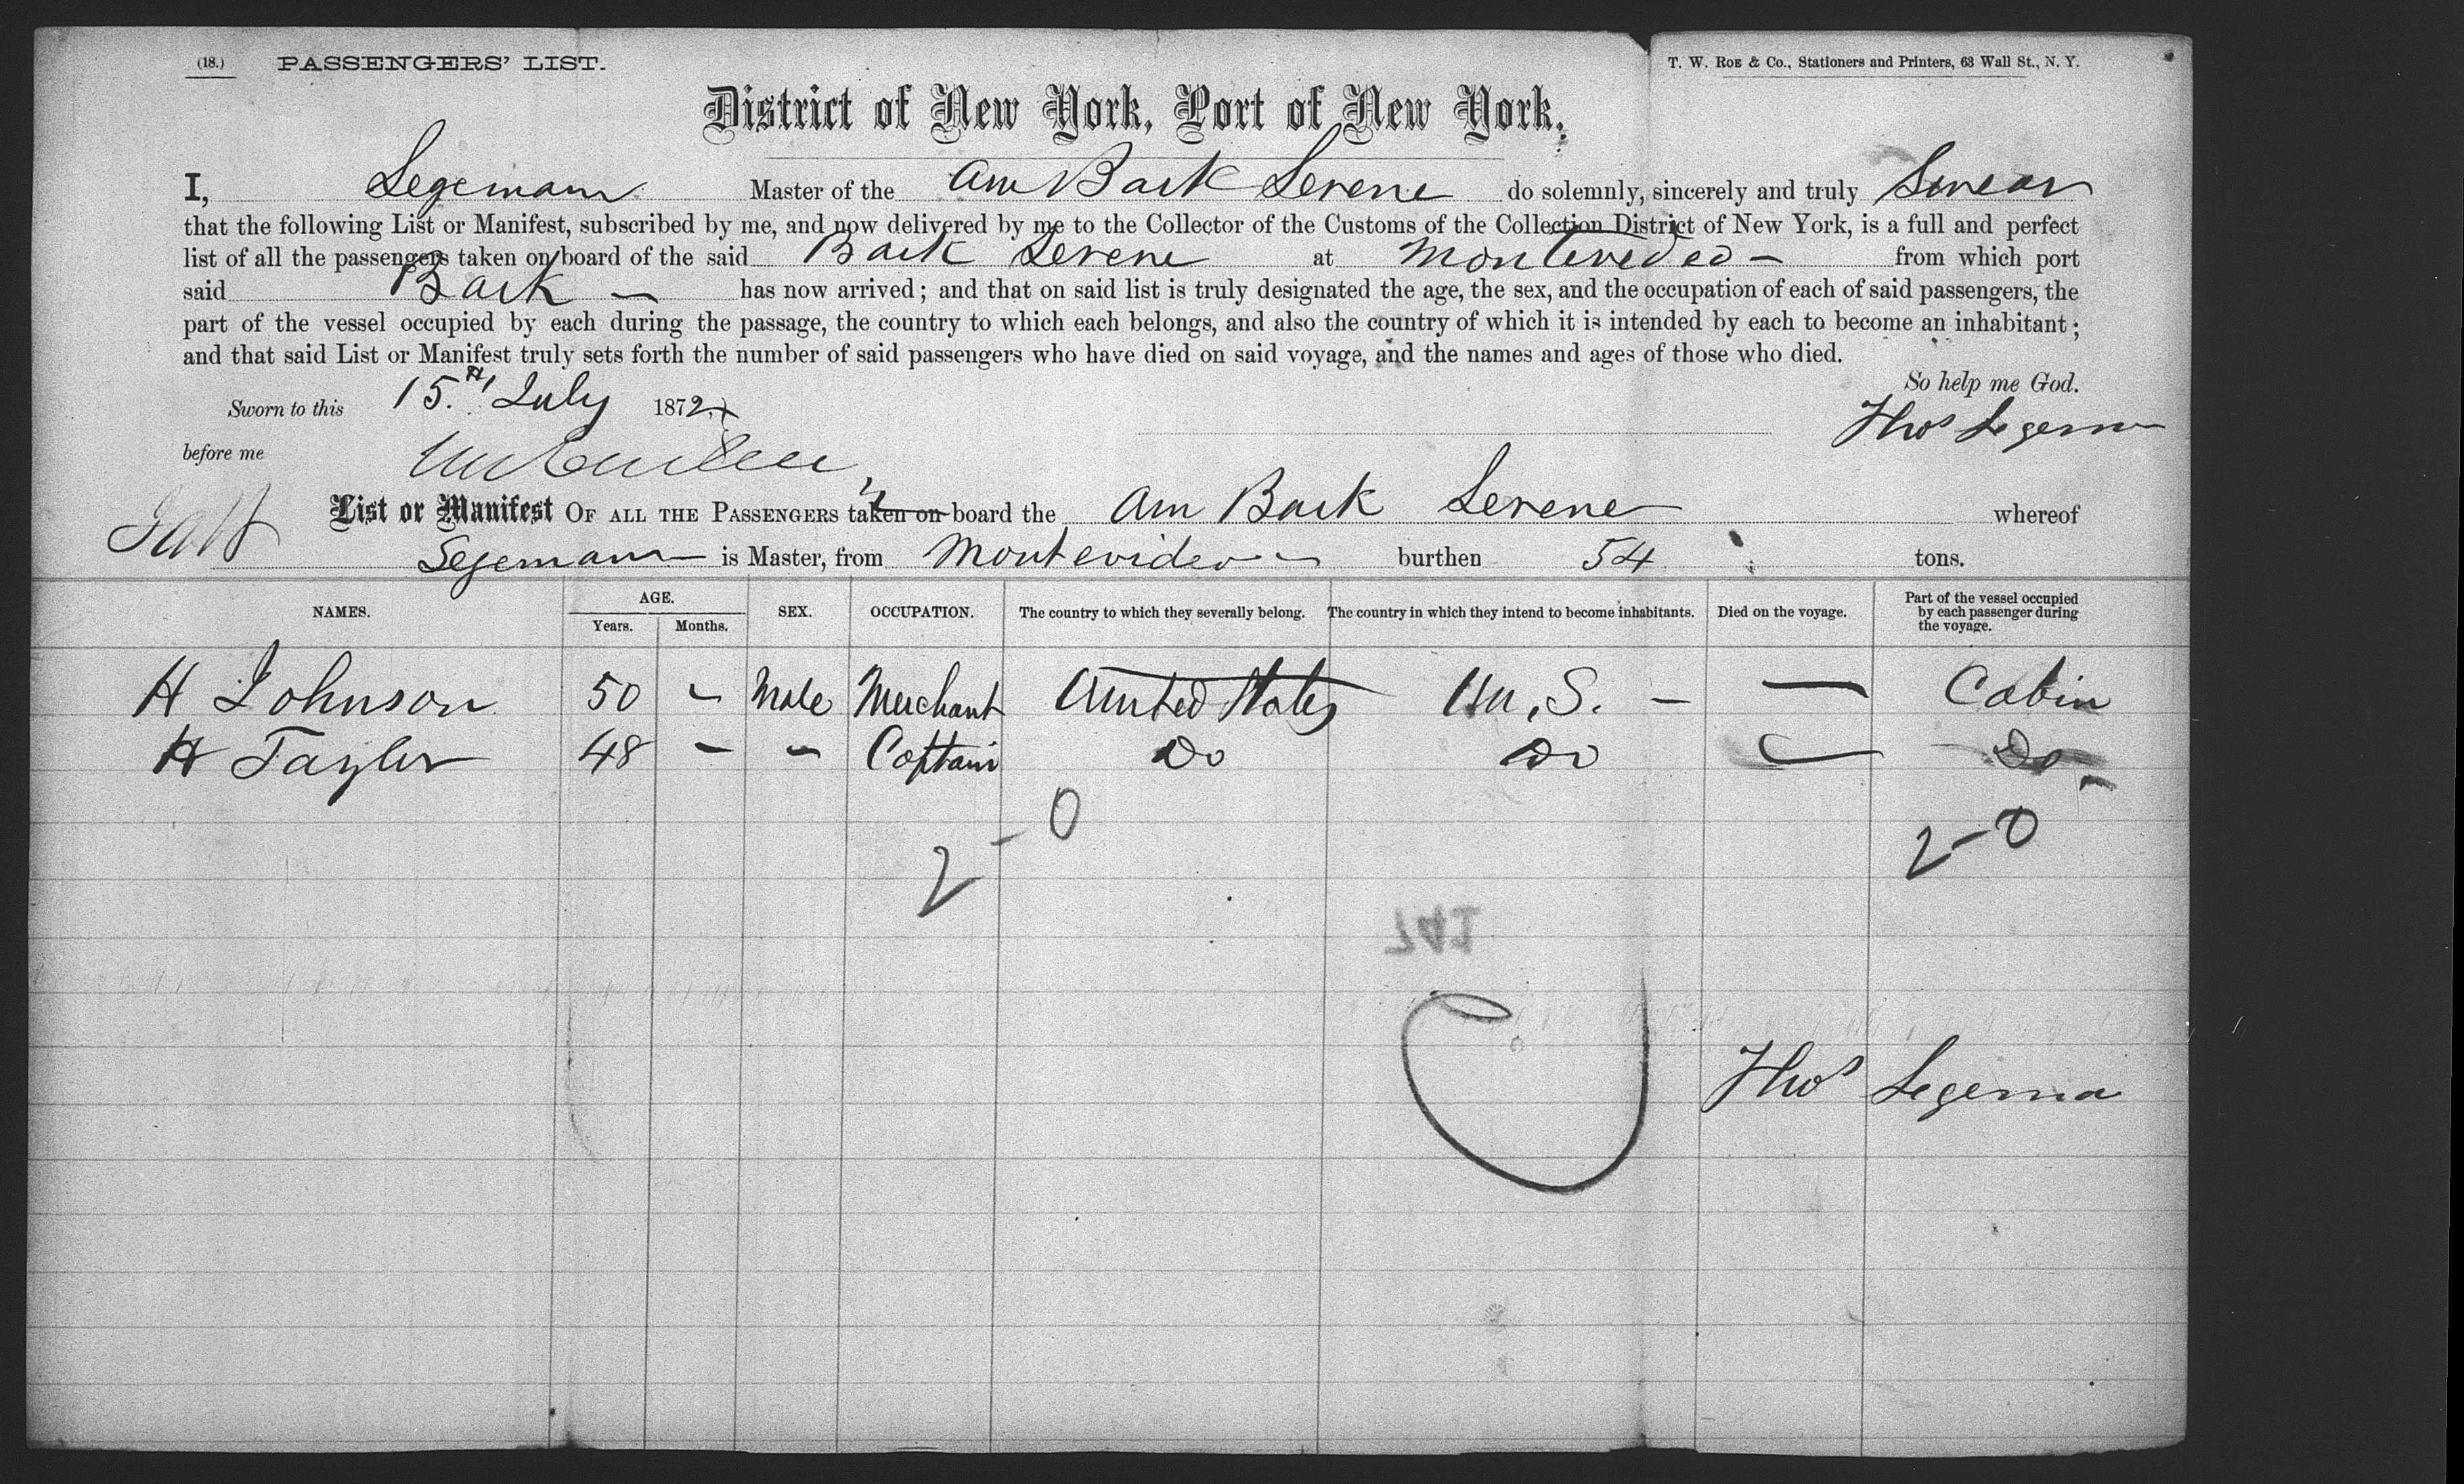 (18.) PASSENGERS' LIST.
T. W. Roe & Co., Stationers and Printers, 63 Wall St., N. Y.
District of New York, Port of New York.
I, Segemann Master of the Am Bark Serene do solemnly, sincerely and truly Swear
that the following List or Manifest, subscribed by me, and now delivered by me to the Collector of the Customs of the Collection District of New York, is a full and perfect
list of all the passengers taken on board of the said Bark Serene at Montevedeo - from which port
said Bark - has now arrived; and that on said list is truly designated the age, the sex, and the occupation of each of said passengers, the
part of the vessel occupied by each during the passage, the country to which each belongs, and also the country of which it is intended by each to become an inhabitant;
and that said List or Manifest truly sets forth the number of said passengers who have died on said voyage, and the names and ages of those who died.
So help me God.
Sworn to this 15.th July 1872
Thos Segema
before me
List or Manifest OF ALL THE PASSENGERS taken on board the Am Bark Serene whereof
Segemann is Master, from Montevideo burthen 54 tons.
NAMES. AGE. Years. Months. SEX. OCCUPATION. The country to which they severally belong. The country in which they intend to become inhabitants. Died on the voyage. Part of the vessel occupied by each passenger during the voyage.
H Johnson 50 - Male Merchant United States U. S. - — Cabin
H Taylor 48 - - Captain Do Do — Do
2 - 0 2 - 0
741
Thos Segema